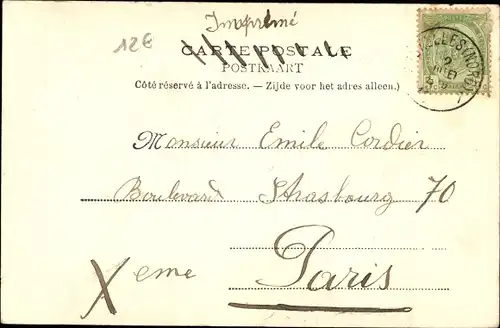 Imprimé
12€
CARTE POSTALE
POSTKAART
Côté réservé à l'adresse. — Zijde voor het adres alleen.)
Monsieur Emile Cordier
Boulevard Strasbourg 70
Paris
Xeme